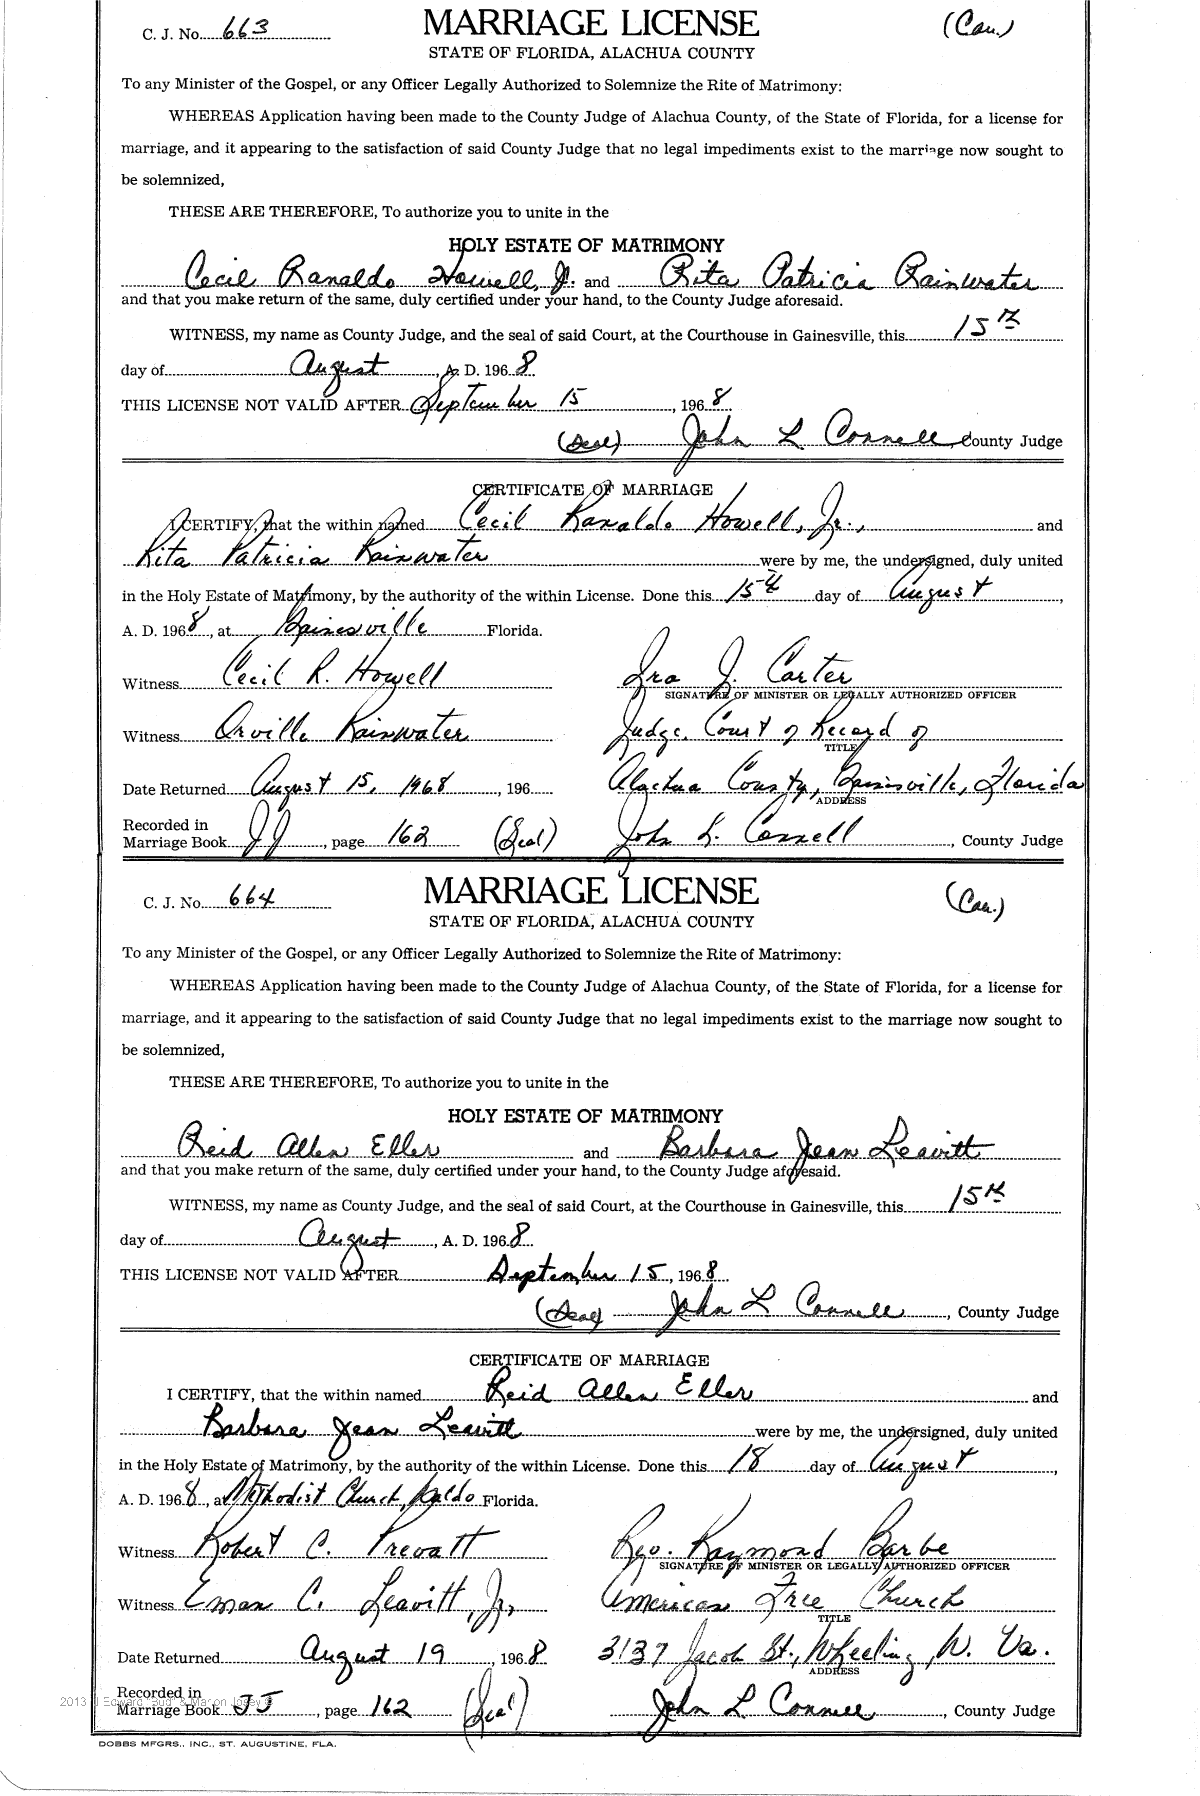 C. J. No. 663 MARRIAGE LICENSE (Cau.)
STATE OF FLORIDA, ALACHUA COUNTY
To any Minister of the Gospel, or any Officer Legally Authorized to Solemnize the Rite of Matrimony:
WHEREAS Application having been made to the County Judge of Alachua County, of the State of Florida, for a license for
marriage, and it appearing to the satisfaction of said County Judge that no legal impediments exist to the marriage now sought to
be solemnized,
THESE ARE THEREFORE, To authorize you to unite in the
HOLY ESTATE OF MATRIMONY
Cecil Ranaldo Howell, Jr. and Rita Patricia Rainwater
and that you make return of the same, duly certified under your hand, to the County Judge aforesaid.
WITNESS, my name as County Judge, and the seal of said Court, at the Courthouse in Gainesville, this 15th
day of August, A. D. 1968
THIS LICENSE NOT VALID AFTER September 15, 1968
(Seal) John L Connell, County Judge
CERTIFICATE OF MARRIAGE
I CERTIFY, that the within named Cecil Ranaldo Howell, Jr., and
Rita Patricia Rainwater were by me, the undersigned, duly united
in the Holy Estate of Matrimony, by the authority of the within License. Done this 15th day of August,
A. D. 1968, at Gainesville Florida.
Witness Cecil R. Howell Ira J. Carter
SIGNATURE OF MINISTER OR LEGALLY AUTHORIZED OFFICER
Witness Orville Rainwater Judge, Court of Record of
TITLE
Date Returned August 15, 1968, 196 Alachua County, Gainesville, Florida
ADDRESS
Recorded in
Marriage Book JJ, page 162 (Seal) John L. Connell, County Judge
C. J. No. 664 MARRIAGE LICENSE (Cau.)
STATE OF FLORIDA, ALACHUA COUNTY
To any Minister of the Gospel, or any Officer Legally Authorized to Solemnize the Rite of Matrimony:
WHEREAS Application having been made to the County Judge of Alachua County, of the State of Florida, for a license for
marriage, and it appearing to the satisfaction of said County Judge that no legal impediments exist to the marriage now sought to
be solemnized,
THESE ARE THEREFORE, To authorize you to unite in the
HOLY ESTATE OF MATRIMONY
Reid Allen Eller and Barbara Jean Leavitt
and that you make return of the same, duly certified under your hand, to the County Judge aforesaid.
WITNESS, my name as County Judge, and the seal of said Court, at the Courthouse in Gainesville, this 15th
day of August, A. D. 1968
THIS LICENSE NOT VALID AFTER September 15, 1968
(Seal) John L Connell, County Judge
CERTIFICATE OF MARRIAGE
I CERTIFY, that the within named Reid Allen Eller and
Barbara Jean Leavitt were by me, the undersigned, duly united
in the Holy Estate of Matrimony, by the authority of the within License. Done this 18 day of August,
A. D. 1968, at Methodist Church, Waldo Florida.
Witness Robert C. Prevatt Raymond Barbe
SIGNATURE OF MINISTER OR LEGALLY AUTHORIZED OFFICER
Witness Eman C. Leavitt, Jr, American Free Church
TITLE
Date Returned August 19, 1968 3137 Jacob St., Wheeling, W. Va.
ADDRESS
Recorded in
2013 J Edward "Bud" & Marion
Marriage Book JJ, page 162 (Seal) John L Connell, County Judge
DOBBS MFGRS., INC., ST. AUGUSTINE, FLA.